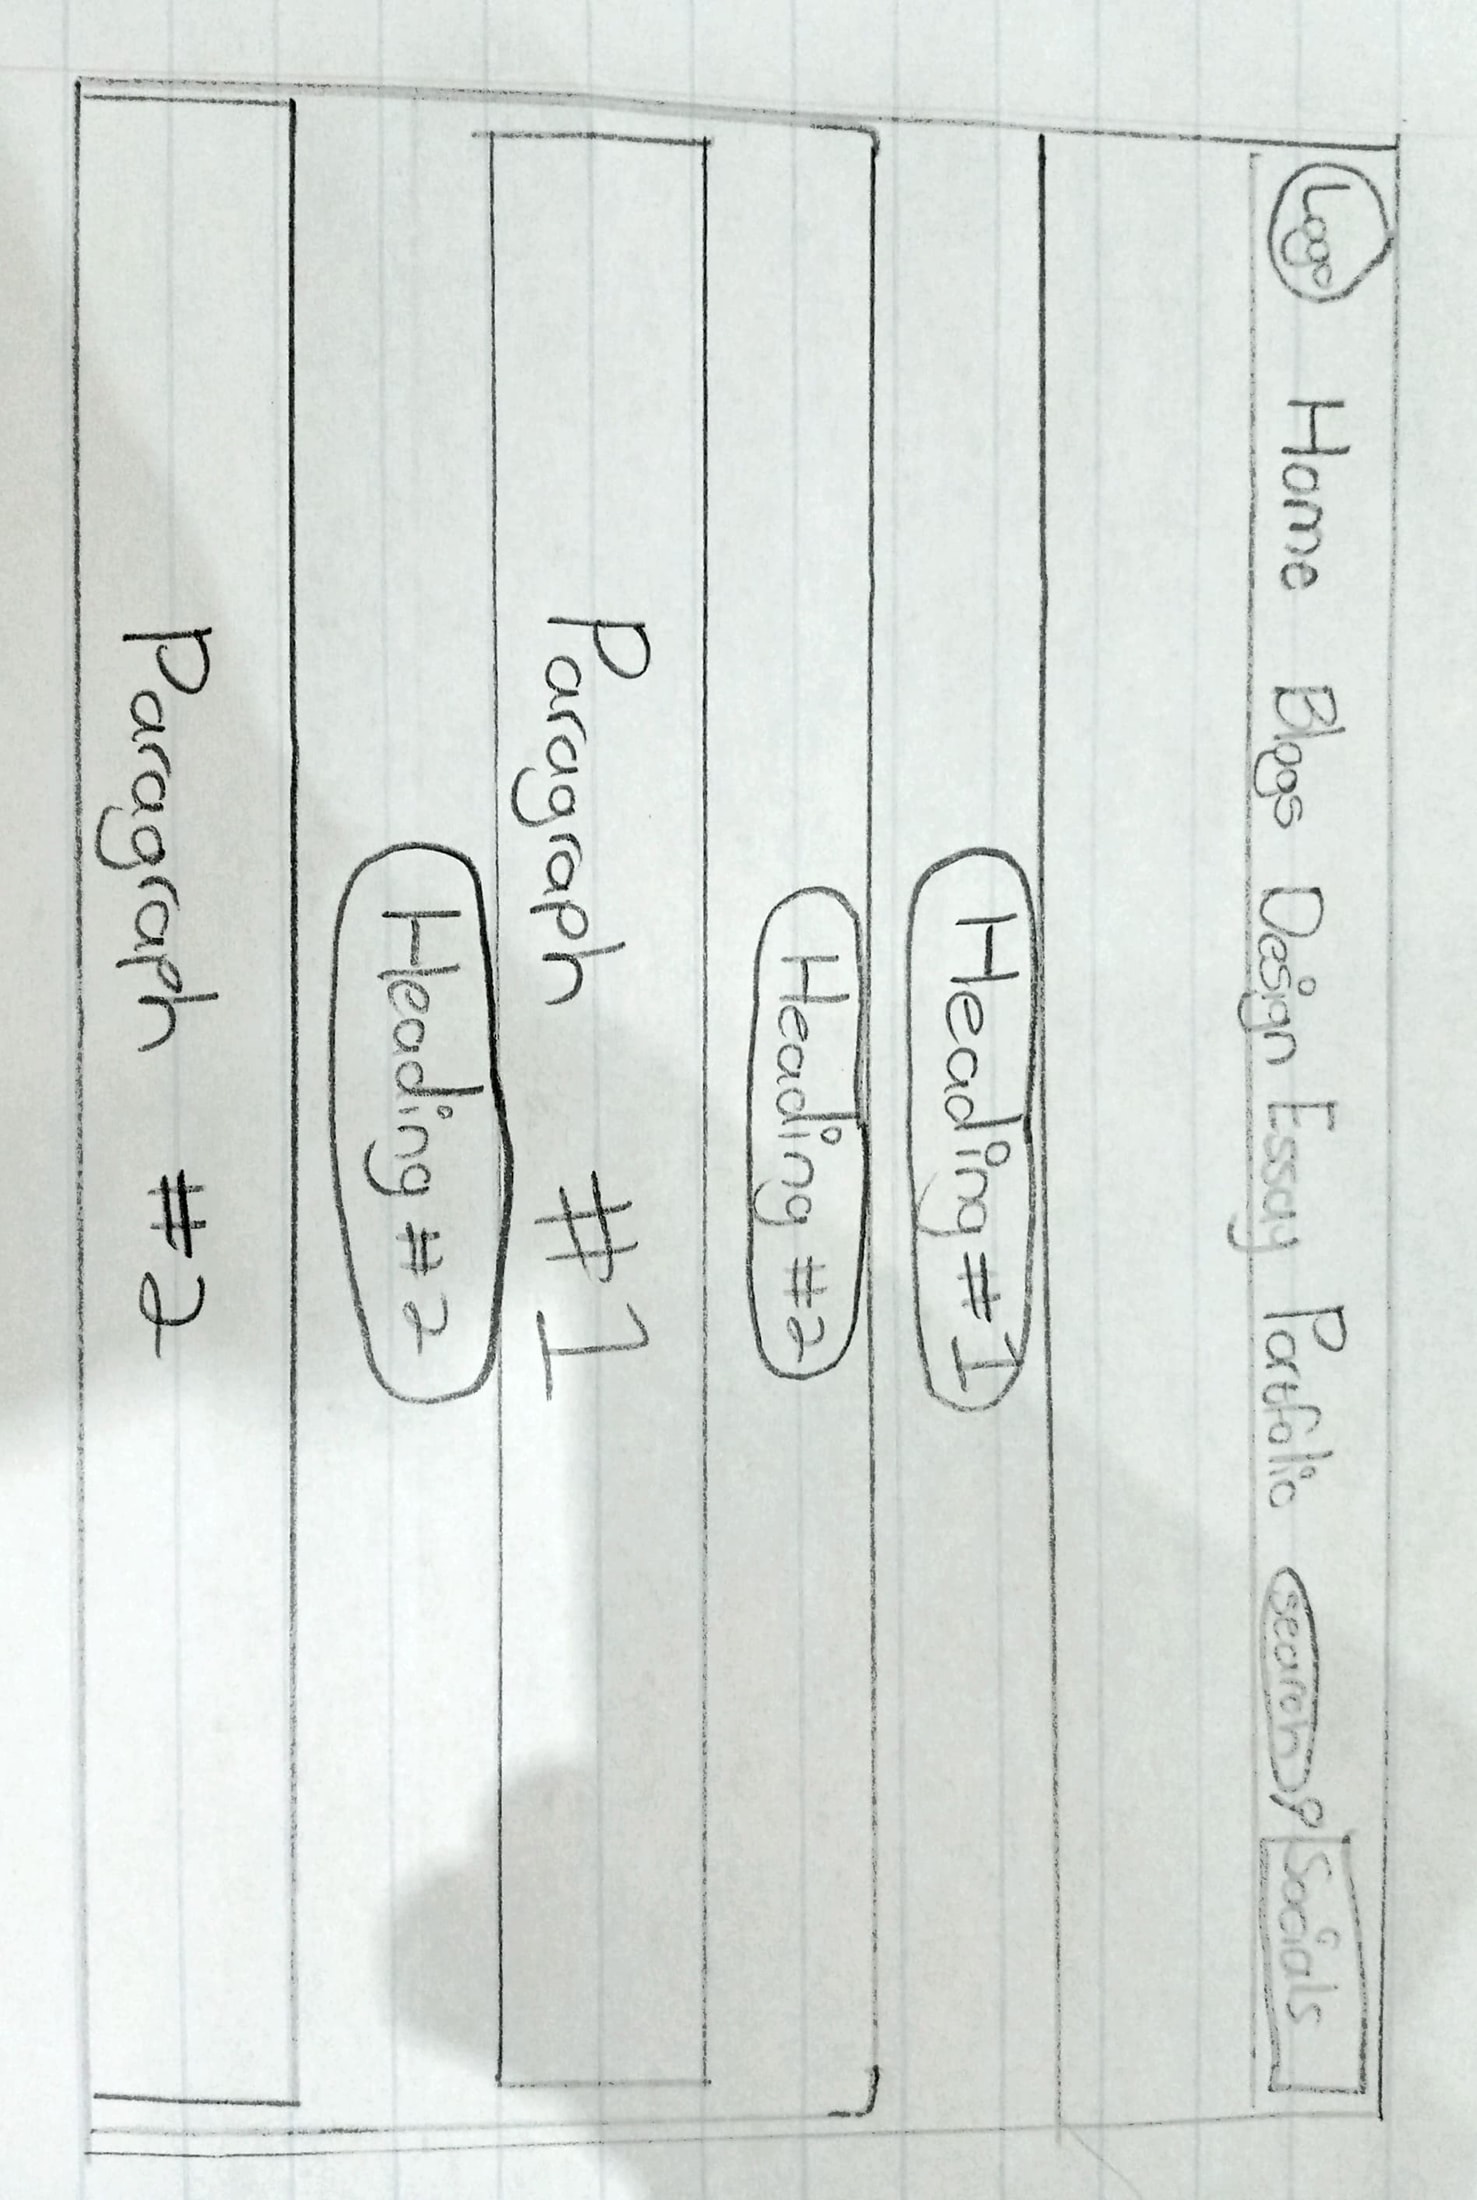 Logo Home Blogs Design Essay Portfolio search Socials
Heading #1
Heading #2
Paragraph #1
Heading #2
Paragraph #2